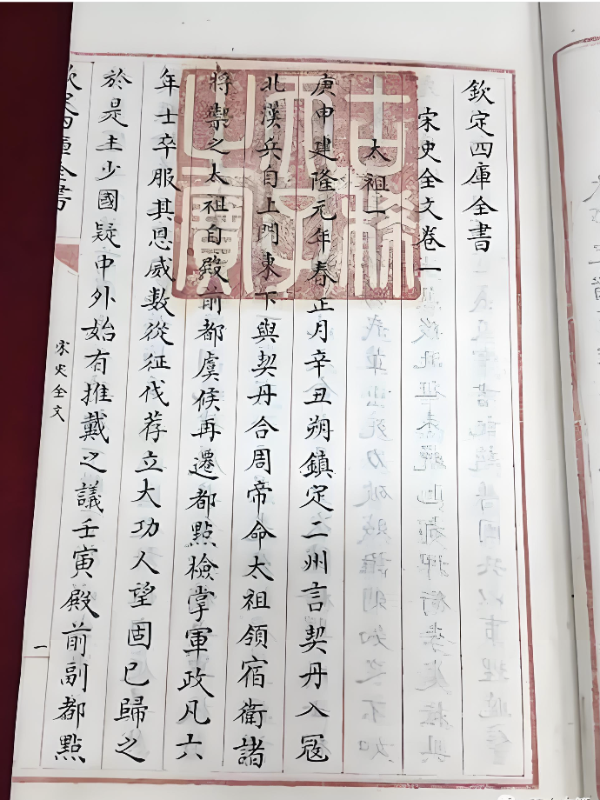 欽定四庫全書
宋史全文卷一
太祖一
庚申建隆元年春正月辛丑朔鎮定二州言契丹入冦
北漢兵自上門東下與契丹合周帝命太祖領宿衛諸
將禦之太祖自殿前都虞候再遷都點檢掌軍政凡六
年士卒服其恩威數從征伐荐立大功人望固已歸之
於是主少國疑中外始有推戴之議壬寅殿前副都點
欽定四庫全書
宋史全文
一
古稀天子之寶